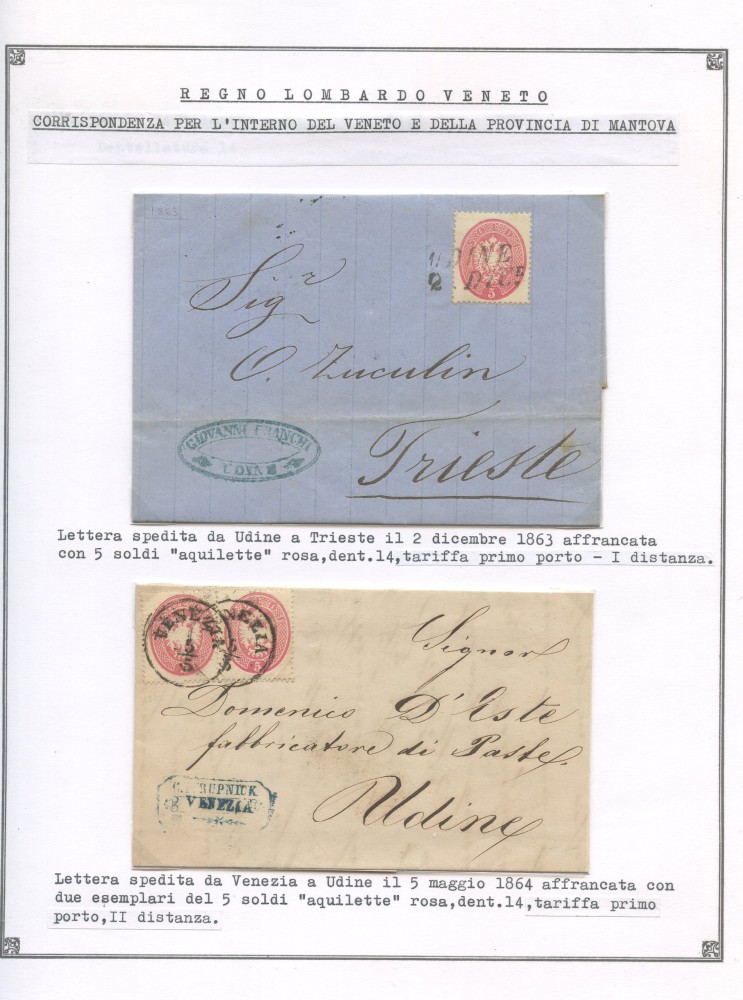 REGNO LOMBARDO VENETO
CORRISPONDENZA PER L'INTERNO DEL VENETO E DELLA PROVINCIA DI MANTOVA
1863
UDINE
2 DICE
5
Sigr
O. Zuculin
Trieste
GIOVANNI
UDINE
Lettera spedita da Udine a Trieste il 2 dicembre 1863 affrancata
con 5 soldi "aquilette" rosa,dent.14,tariffa primo porto - I distanza.
VENEZIA
5/5
VENEZIA
5
Signor
Domenico D'Este
fabbricatore di Paste
Udine
RUPNICK
VENEZIA
Lettera spedita da Venezia a Udine il 5 maggio 1864 affrancata con
due esemplari del 5 soldi "aquilette" rosa,dent.14,tariffa primo
porto,II distanza.